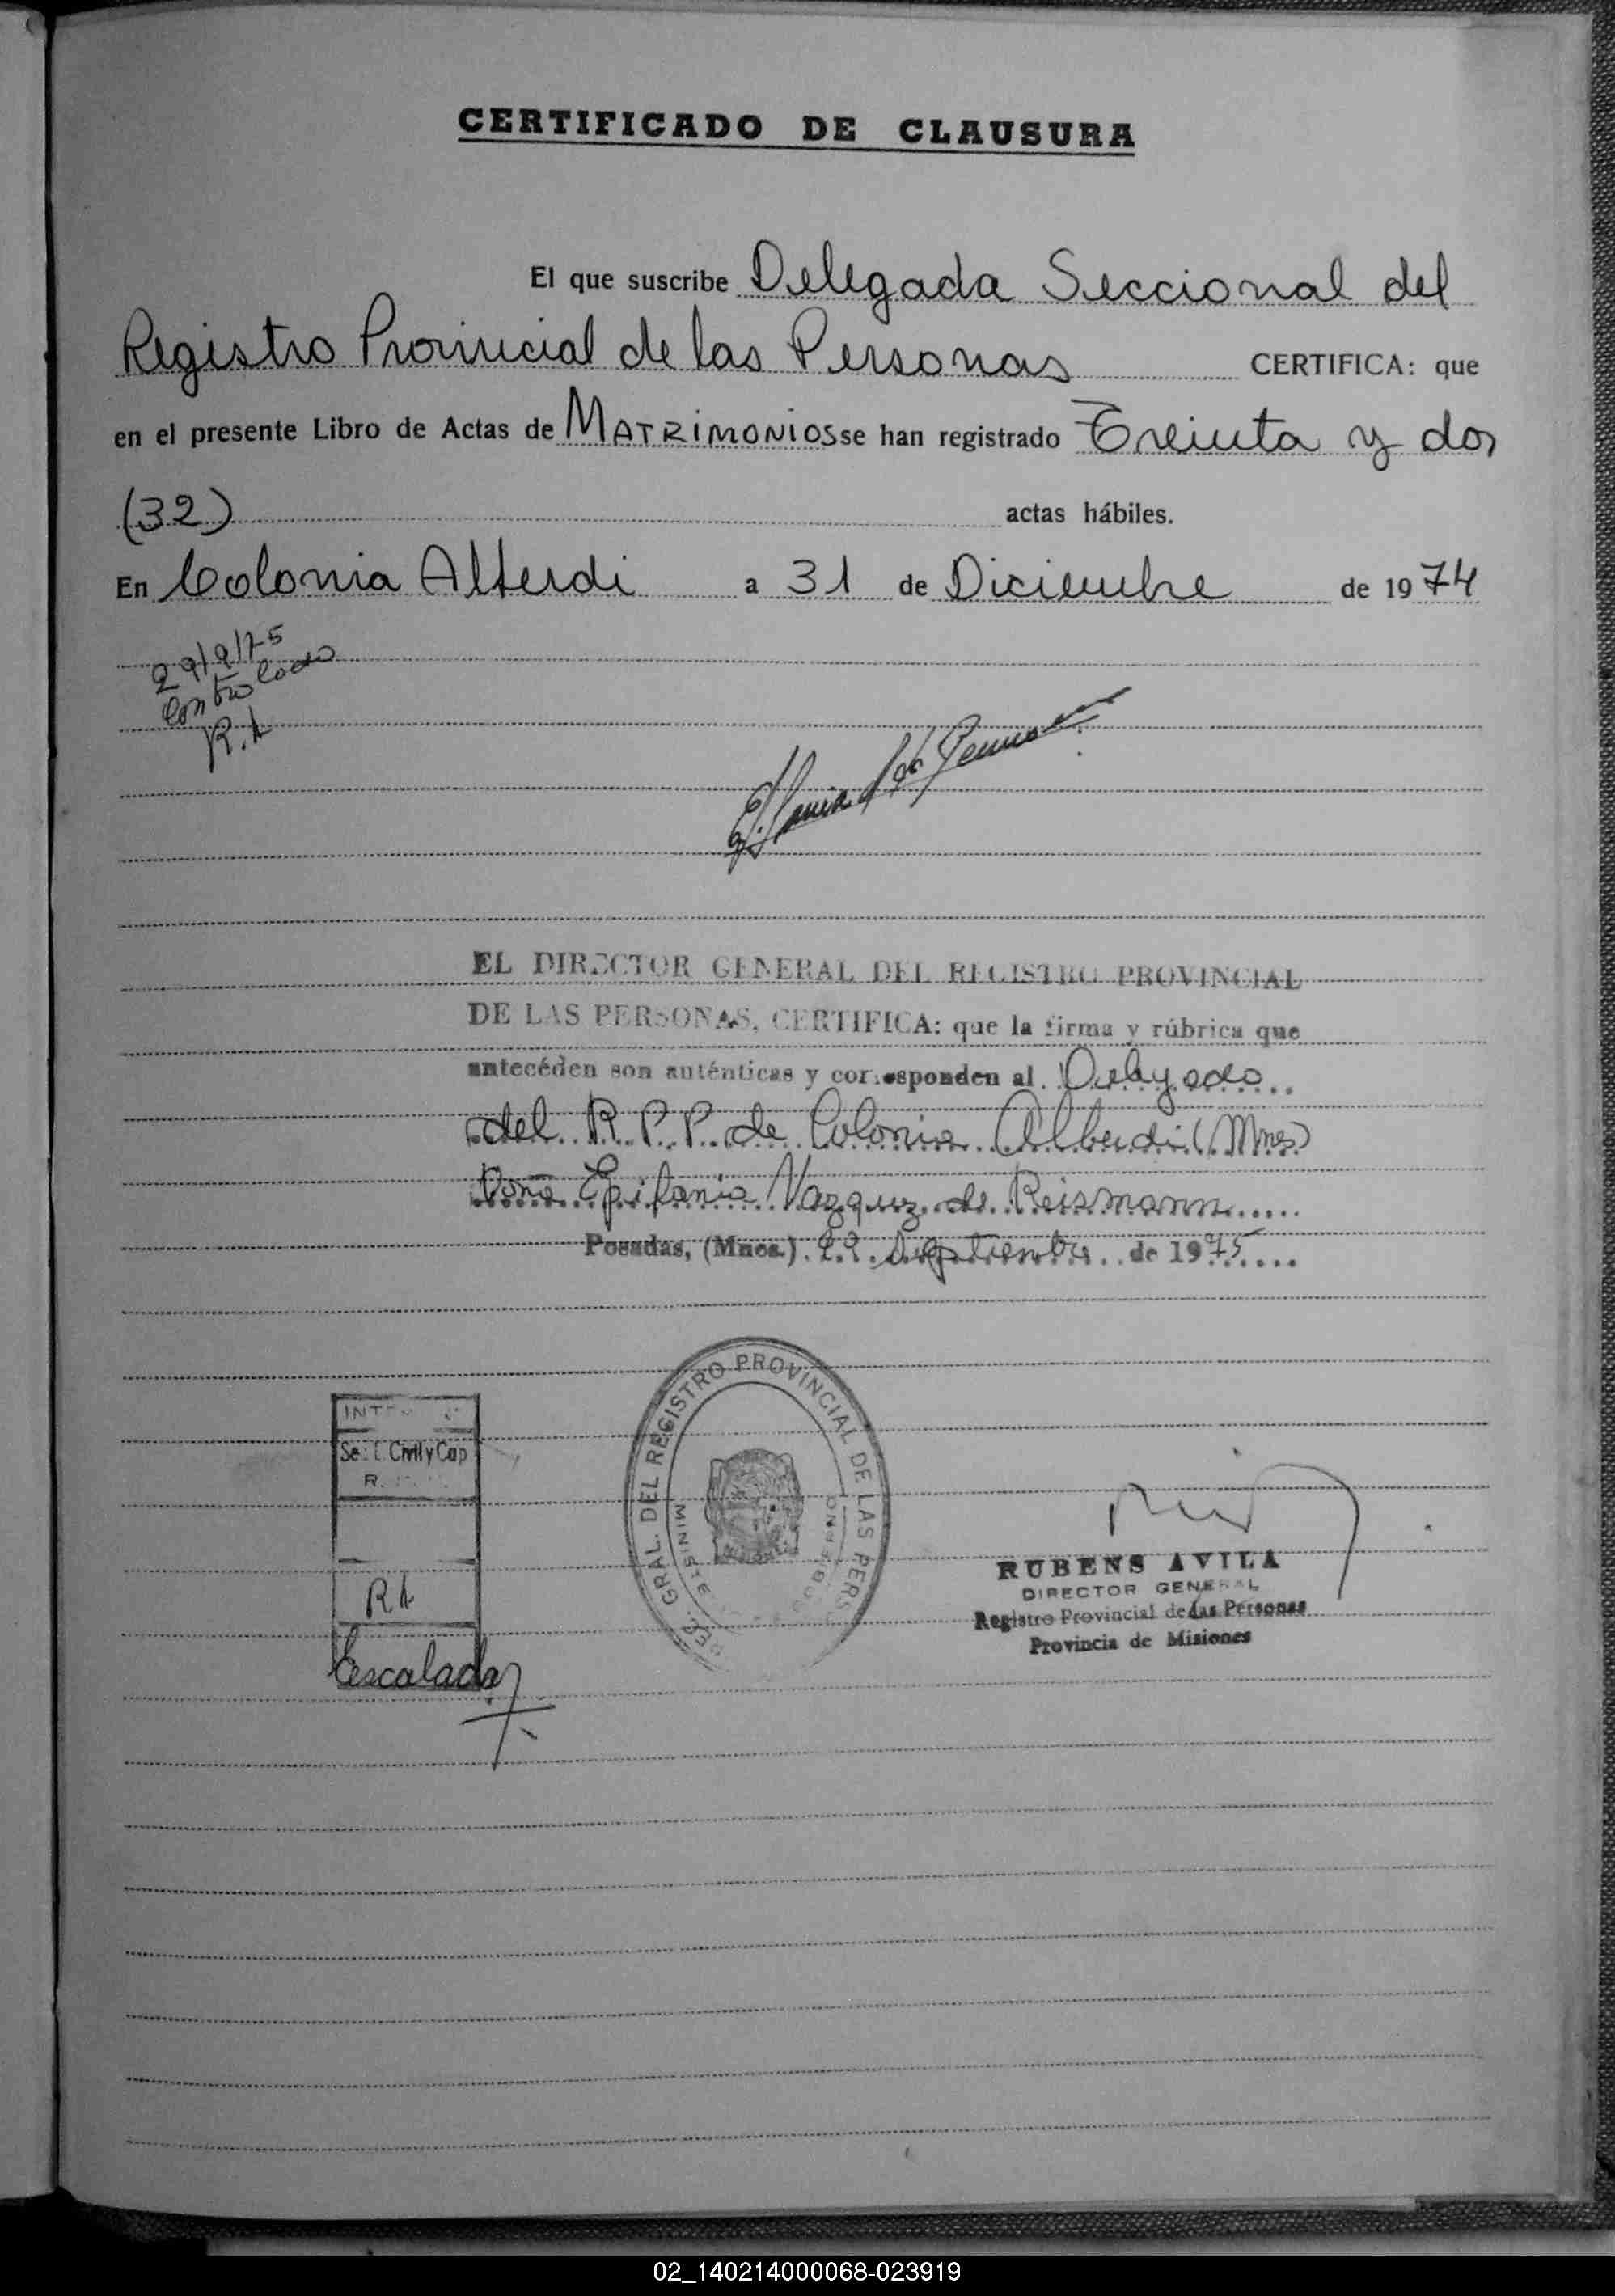 CERTIFICADO DE CLAUSURA
El que suscribe Delegada Seccional del
Registro Provincial de las Personas CERTIFICA: que
en el presente Libro de Actas de MATRIMONIOS se han registrado Treinta y dos
(32) actas hábiles.
En Colonia Alberdi a 31 de Diciembre de 1974
29/9/75
Controlado
R.A
EL DIRECTOR GENERAL DEL REGISTRO PROVINCIAL
DE LAS PERSONAS, CERTIFICA: que la firma y rúbrica que
antecéden son auténticas y corresponden al Delegado
del R.P.P. de Colonia Alberdi (Mnes)
Doña Epifania Vazquez de Reismann
Posadas, (Mnes.) Septiembre de 1975
GRAL. DEL REGISTRO PROVINCIAL DE LAS PERS
Civil y Cap
R.
RA
Escalada
RUBENS AVILA
DIRECTOR GENERAL
Registro Provincial de las Personas
Provincia de Misiones
02_140214000068-023919